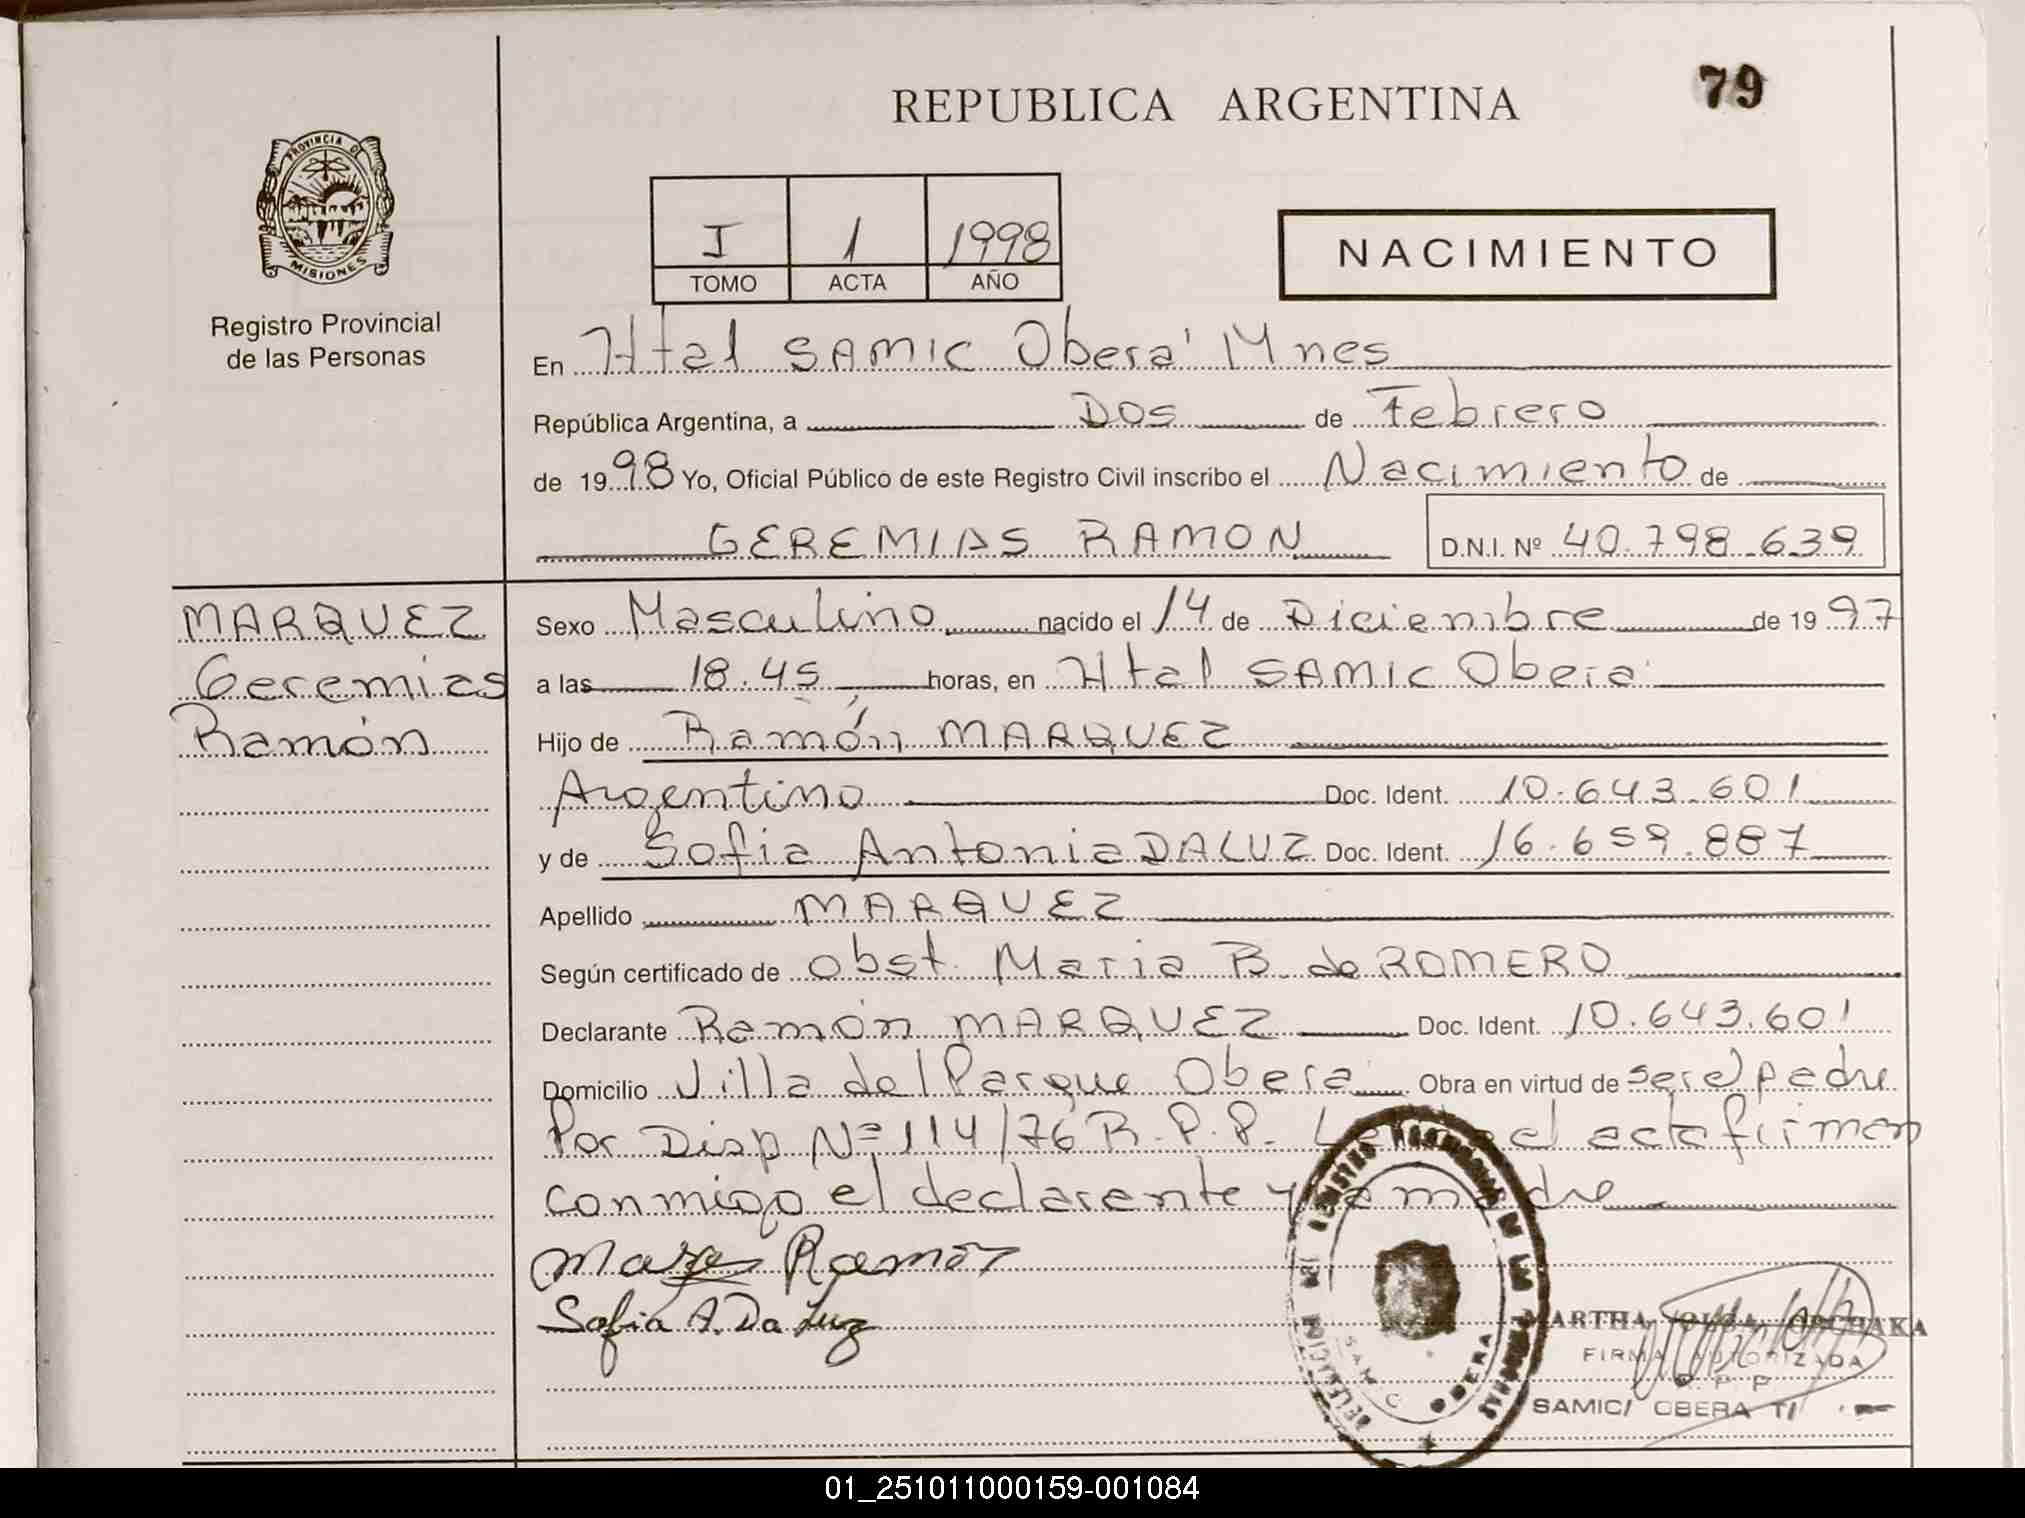 79
REPUBLICA ARGENTINA
PROVINCIA DE
MISIONES
Registro Provincial
de las Personas
I 1 1998
TOMO ACTA AÑO
NACIMIENTO
En Htal SAMIC Oberá Mnes
República Argentina, a Dos de Febrero
de 1998 Yo, Oficial Público de este Registro Civil inscribo el Nacimiento de
GEREMIAS RAMON D.N.I. Nº 40.798.639
MARQUEZ
Geremias
Ramón
Sexo Masculino nacido el 14 de Diciembre de 1997
a las 18.45 horas, en Htal SAMIC Oberá
Hijo de Ramón MARQUEZ
Argentino Doc. Ident. 10.643.601
y de Sofia Antonia DALUZ Doc. Ident. 16.659.887
Apellido MARQUEZ
Según certificado de obst. Maria B. de ROMERO
Declarante Ramón MARQUEZ Doc. Ident. 10.643.601
Domicilio Villa del Parque Oberá Obra en virtud de ser el padre
Por Disp Nº 114/76 R.P.P. el acta firman
conmigo el declarante y la madre
Ramón
Sofia A. Da Luz
SAMIC
OBERA
MARTHA OLGA
FIRMA AUTORIZADA
R.P.P.
SAMIC/ OBERA
01_251011000159-001084